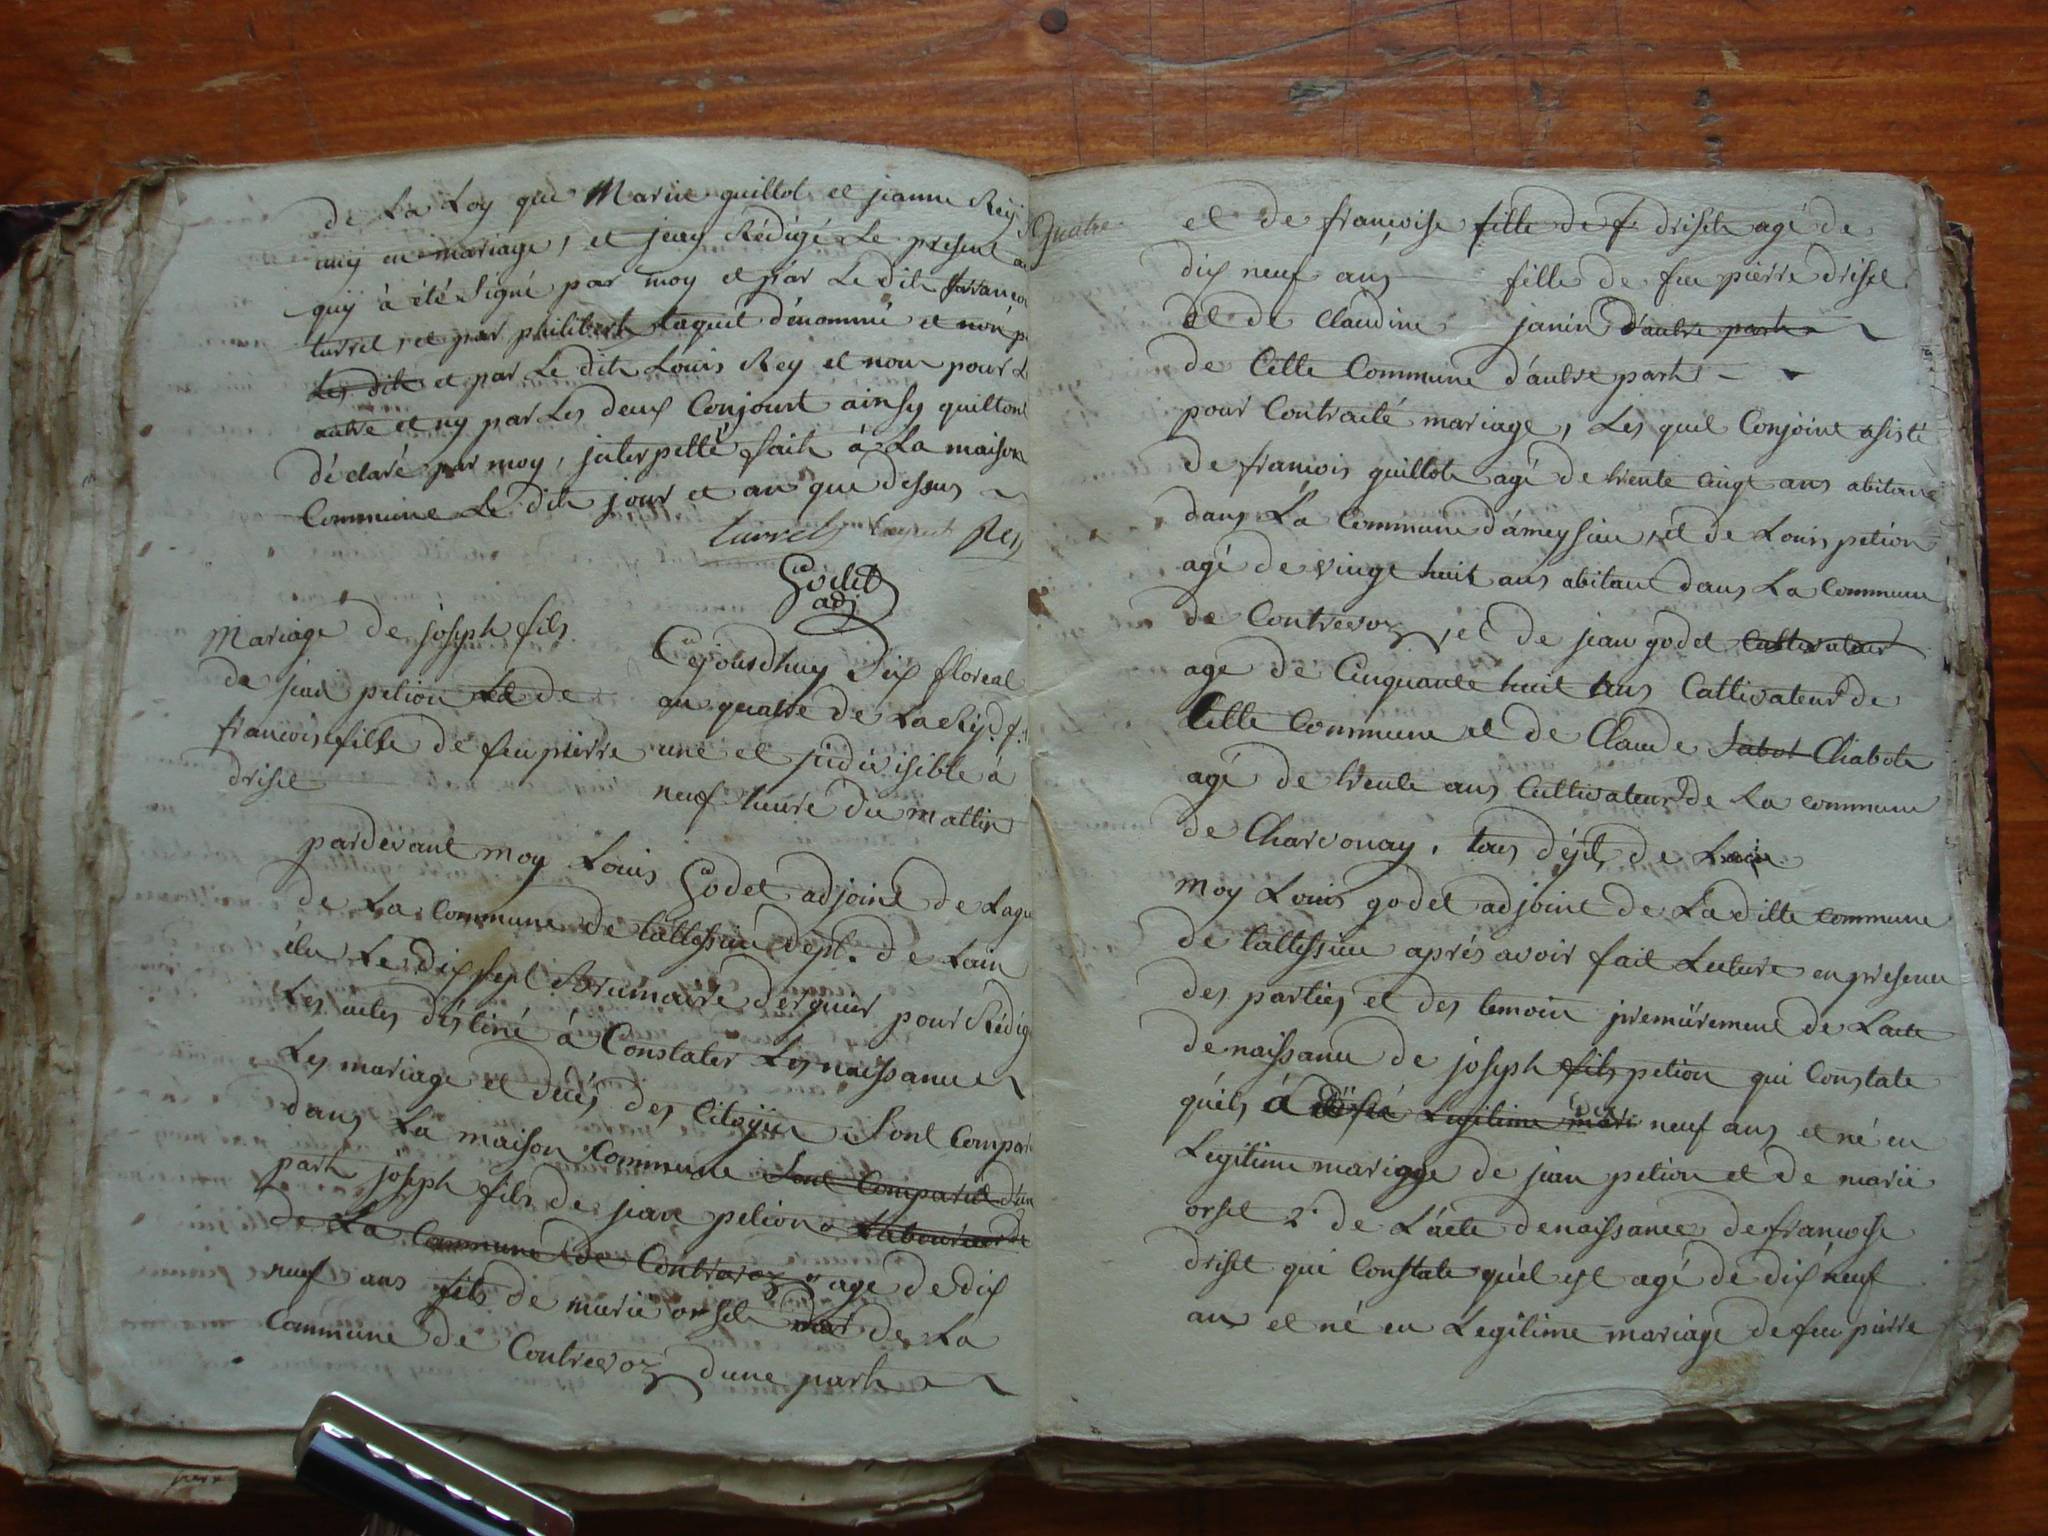 de La Loy que Marie guillot et jeanne Rey
uniy en mariage, et jeay Rédigé Le present
quy à été Signé par moy et par Le dit
turrel, et par philibert taquet dénommé et non
Les dit et par Le dit Louis Rey et non pour
autre et ny par Les deux Conjoint ainsy quilton
déclaré par moy, jnterpellé fait à La maison
Commune Le dit jour et an que dessus
turrel Rey
Godet
adj
Mariage de joseph fils
de jean petion et de
francoise fille de feu pierre
driset
Cejourdhuy Dix floreal
an quatre de La Rép. f.
une et jndivisible à
neuf heure du mattin
pardevant moy Louis Godet adjoint de Lagent
de La Commune de tallissieu dept. de Lain
élu Le dix sept Brumaire dernier pour Rédig
Les actes déstiné à Constater Les naissance
Les mariage et décés des Citoyien Sont Compar
dans La maison Commune Sont Comparut d'un
part joseph fils de jean petion Laboureur de
de La Commune de Contrevoz agé de dix
neuf ans fils de marie orset de La
Commune de Contrevoz dune part
Quatre
et de francoise fille de f driset agé de
dix neuf ans fille de feu pierre driset
et de Claudine janin d'autre part
de Cette Commune d'autre part
pour Contracté mariage, Les quel Conjoint asisté
de francois guillot agé de trente cinq ans abitant
dans La Commune d'ameysieu, et de Louis petion
agé de vingt huit ans abitant dans La Commune
de Contrevoz, et de jean godet Cultivateur
agé de Cinquante huit ans Cultivateur de
Cette Commune et de Claude Sabot Chabote
agé de trente ans Cultivateur de La commune
de Charvonay, tous dépt. de Lain
Moy Louis godet adjoint de La ditte commune
de tallissieu aprés avoir fait Lecture en presence
des parties et des temoin premiérement de Lacte
de naissance de joseph fils petion qui Constate
quéls à Legitime mari neuf ans et né en
Legitime mariage de jean petion et de marie
orset 2° de L'acte de naissance de francoise
driset qui Constate quél est agé de dix neuf
ans et né en Legitime mariage de feu pierre